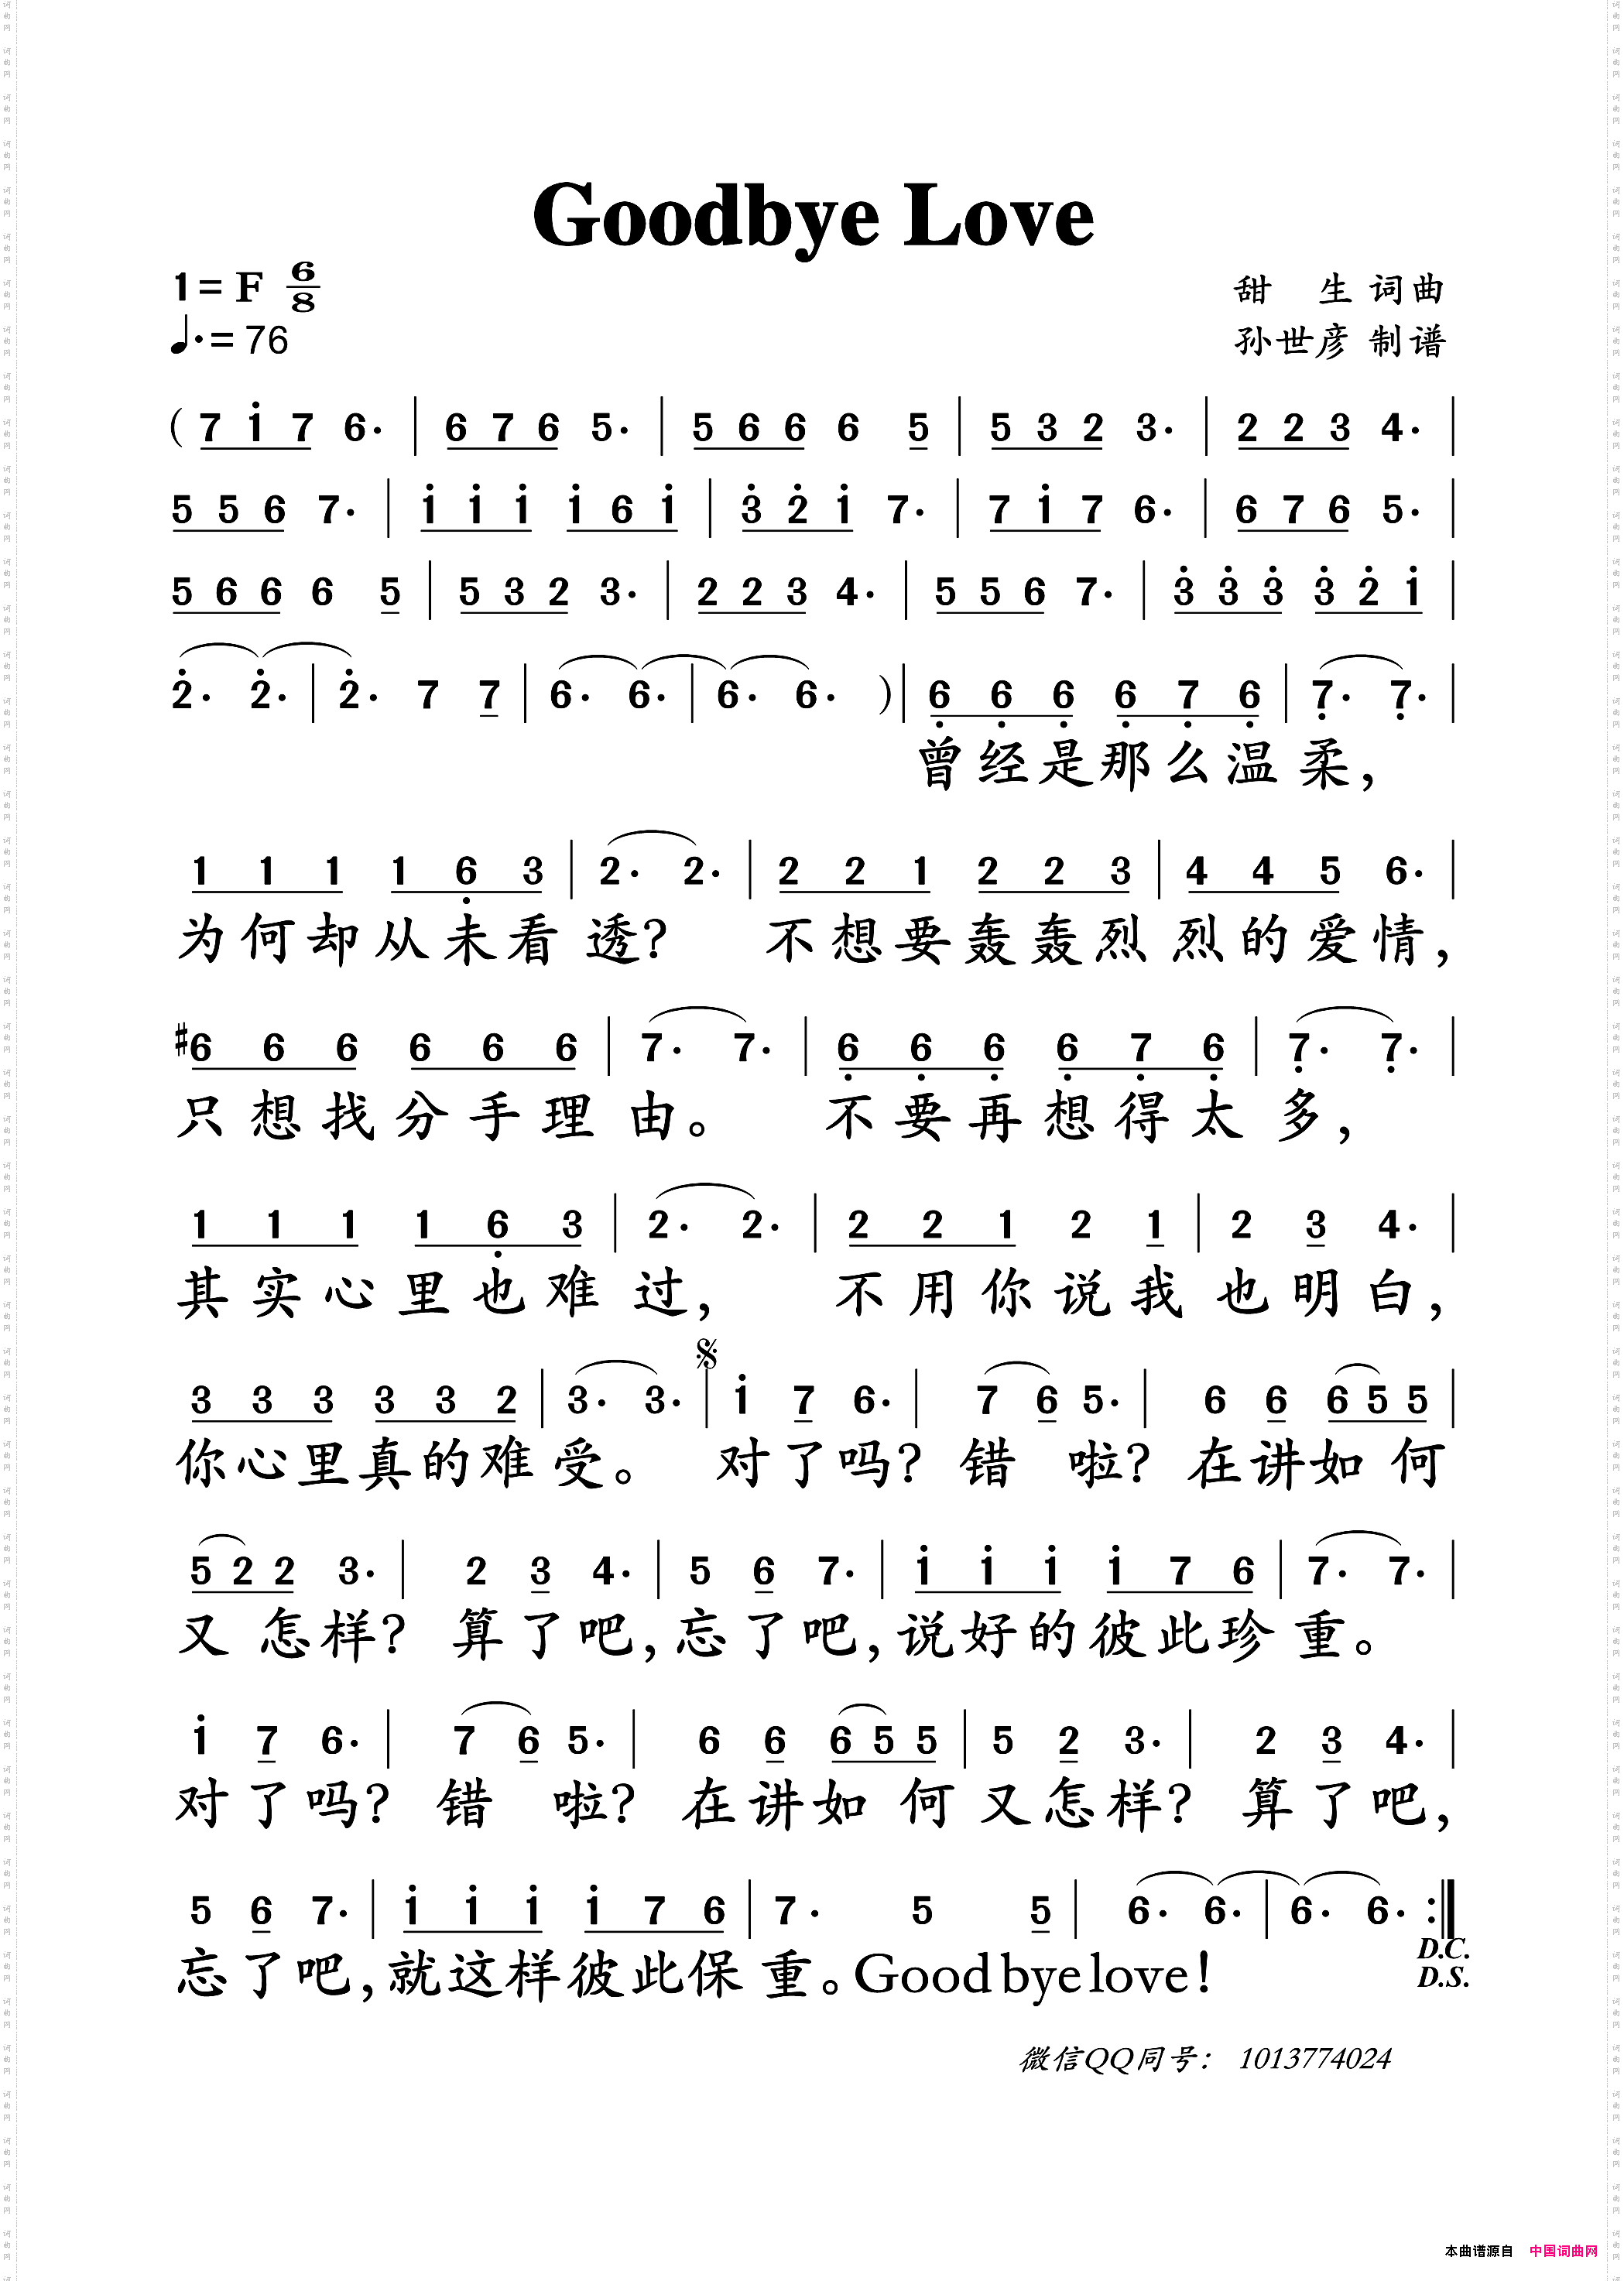 Goodbye Love
1= F 6/8
甜 生 词曲
♩. = 76
孙世彦 制谱
( 7 i 7 6. | 6 7 6 5. | 5 6 6 6 5 | 5 3 2 3. | 2 2 3 4. |
5 5 6 7. | i i i i 6 i | 3̇ 2̇ i 7. | 7 i 7 6. | 6 7 6 5. |
5 6 6 6 5 | 5 3 2 3. | 2 2 3 4. | 5 5 6 7. | 3̇ 3̇ 3̇ 3̇ 2̇ i |
2̇. 2̇. | 2̇. 7 7 | 6. 6. | 6. 6. ) | 6̣ 6̣ 6̣ 6̣ 7̣ 6̣ | 7̣. 7̣. |
曾经是那么温柔，
1 1 1 1 6̣ 3 | 2. 2. | 2 2 1 2 2 3 | 4 4 5 6. |
为何却从未看透？ 不想要轰轰烈烈的爱情，
#6 6 6 6 6 6 | 7. 7. | 6̣ 6̣ 6̣ 6̣ 7̣ 6̣ | 7̣. 7̣. |
只想找分手理由。 不要再想得太多，
1 1 1 1 6̣ 3 | 2. 2. | 2 2 1 2 1 | 2 3 4. |
其实心里也难过， 不用你说我也明白，
3 3 3 3 3 2 | 3. 3. | i 7 6. | 7 6 5. | 6 6 6 5 5 |
你心里真的难受。 对了吗？错 啦？在讲如 何
5 2 2 3. | 2 3 4. | 5 6 7. | i i i i 7 6 | 7. 7. |
又 怎样？ 算了吧，忘了吧，说好的彼此珍重。
i 7 6. | 7 6 5. | 6 6 6 5 5 | 5 2 3. | 2 3 4. |
对了吗？ 错 啦？ 在讲如 何 又怎样？ 算了吧，
5 6 7. | i i i i 7 6 | 7. 5 5 | 6. 6. | 6. 6. :|
忘了吧，就这样彼此保重。Good bye love!
D.C.
D.S.
微信QQ同号： 1013774024
本曲谱源自 中国词曲网